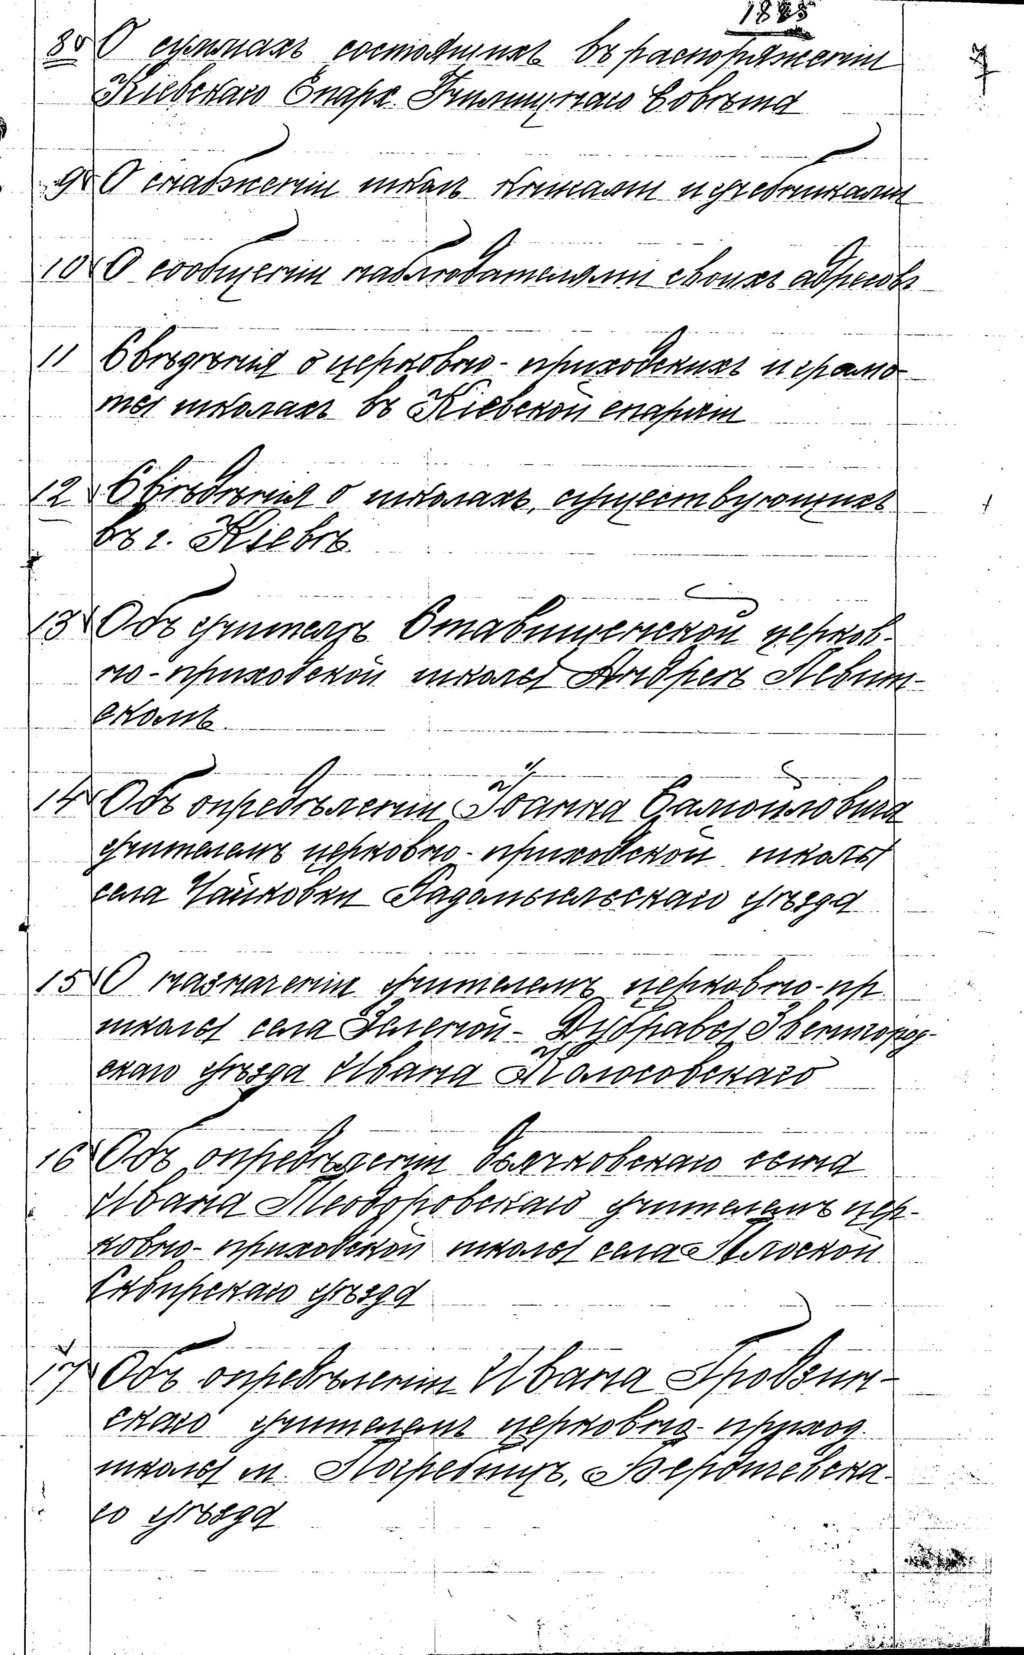 1885
8 О суммахъ состоящихъ въ распоряженіи
Кіевскаго Епарх. Училищнаго Совѣта
9 О снабженіи школъ книгами и учебниками
10 О сообщеніи наблюдателями своихъ адресовъ
11 Свѣдѣнія о церковно-приходскихъ и грамо-
ты школахъ въ Кіевской епархіи
12 Свѣдѣнія о школахъ, существующихъ
въ г. Кіевѣ.
13 Объ учителѣ Ставищенской церков-
но-приходской школы Андреѣ Левит-
скомъ.
14 Объ опредѣленіи Іоанна Самойловича
учителемъ церковно-приходской школы
села Чайковки Радомысльскаго уѣзда
15 О назначеніи учителемъ церковно-пр
школы села Зеленой-Дубравы Звенигород-
скаго уѣзда Ивана Колосовскаго
16 Объ опредѣленіи дьячковскаго сына
Ивана Теодоровскаго учителемъ цер-
ковно-приходской школы села Плоской
Сквирскаго уѣзда
17 Объ опредѣленіи Ивана Гродзин-
скаго учителемъ церковно-приход.
школы м. Погребищъ, Бердичевска-
го уѣзда